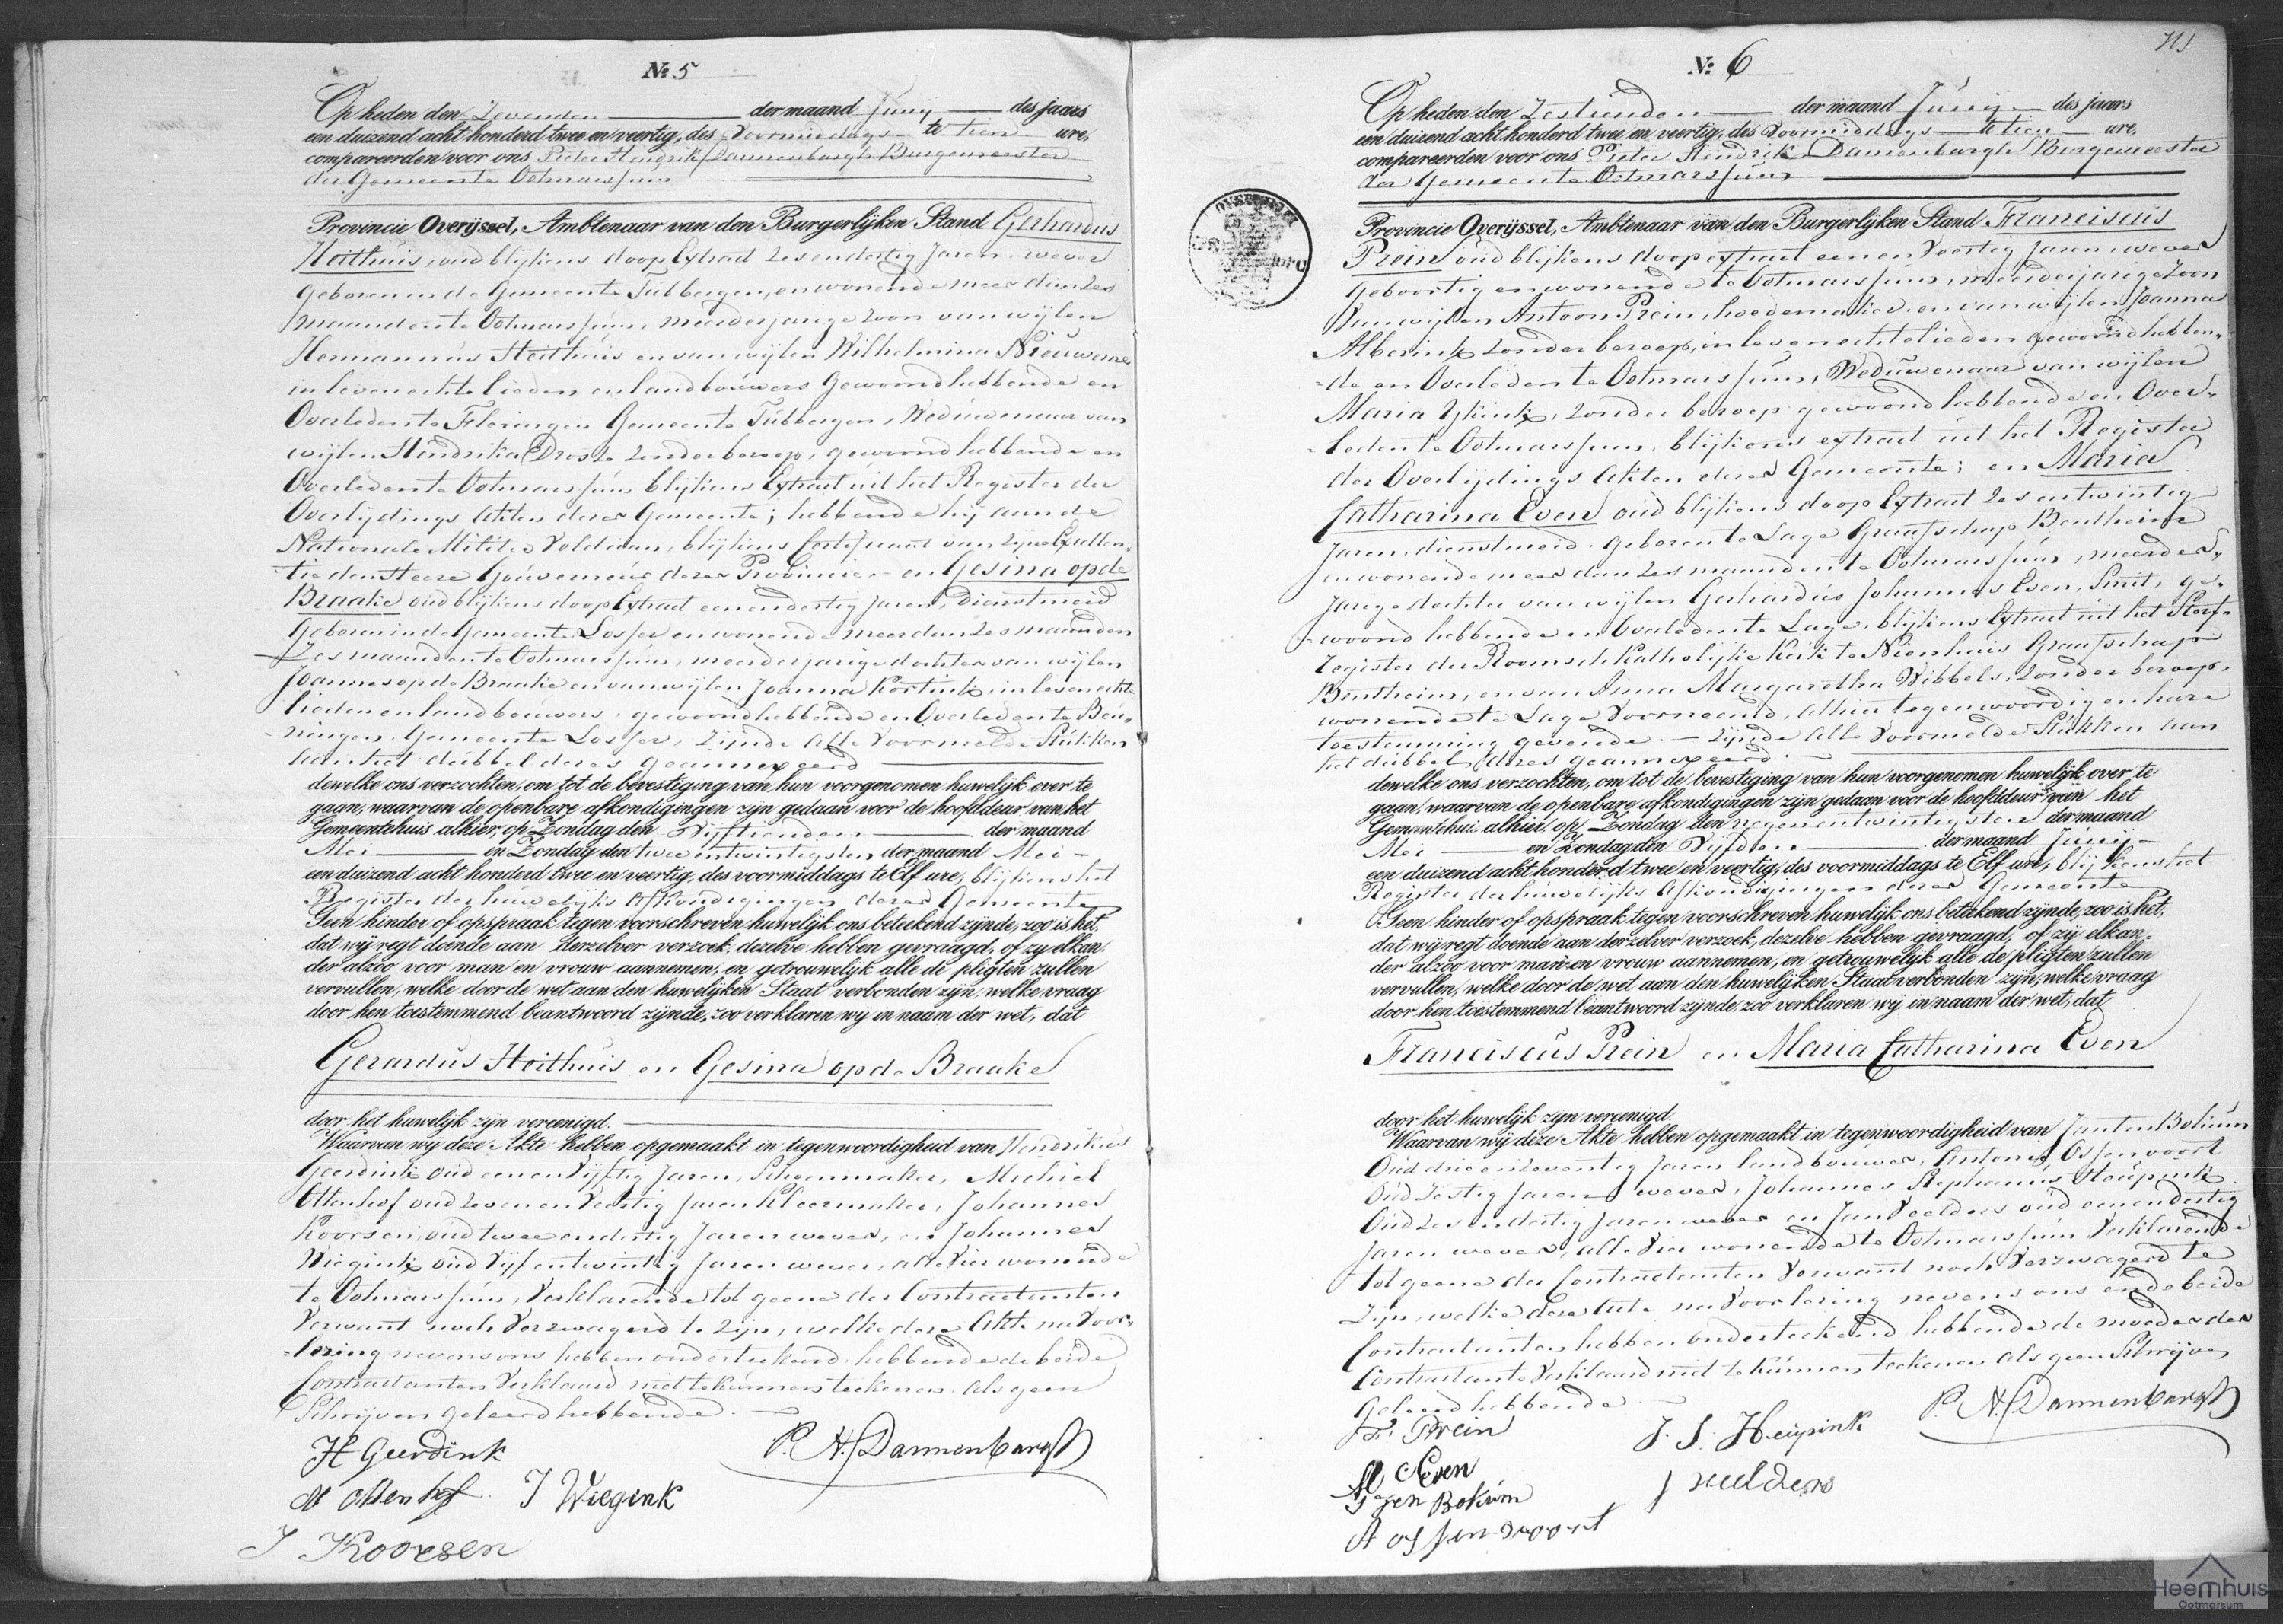 № 5
Op heden den Zevenden der maand Junij des jaars
een duizend acht honderd twee en veertig, des Voormiddags te tien ure,
compareerden voor ons Pieter Hendrik Dannenbargh Burgemeester
der Gemeente Ootmarssum
Provincie Overijssel, Ambtenaar van den Burgerlijken Stand Gerhardus
Hoithuis, oud blijkens doop Extract Zes en dertig Jaren wever
geboren in de Gemeente Tubbergen, en wonende meer dan Zes
maanden te Ootmarssum, meerderjarige Zoon van wijlen
Hermannus Hoithuis en van wijlen Wilhelmina Nieuwe
in leven echte lieden en landbouwers Gewoond hebbende en
Overleden te Fleringen Gemeente Tubbergen, Weduwenaar van
wijlen Hendrika Droste Zonder beroep, gewoond hebbende en
Overleden te Ootmarssum blijkens Extract uit het Register der
Overlijdings Akten dezer Gemeente; hebbende hij aan de
Nationale Militie Voldaan, blijkens Certificaat van Zijne Excellen-
tie den Heere Gouverneur dezer Provincie en Gesina op de
Braake oud blijkens doop Extract een en dertig Jaren, Dienstmeid
Geboren in de Gemeente Losser en wonende meer dan Zes maanden
Zes maanden te Ootmarssum, meerderjarige dochter van wijlen
Joannes op de Braake en van wijlen Joanna Kortink, in leven echte
lieden en landbouwers, gewoond hebbende en Overleden te Beu-
ningen Gemeente Losser, Zijnde Alle Voormelde Stukken
aan het dubbel dezes geannexeerd
dewelke ons verzochten, om tot de bevestiging van hun voorgenomen huwelijk over te
gaan, waarvan de openbare afkondigingen zijn gedaan voor de hoofddeur van het
Gemeentehuis alhier, op Zondag den Vijftienden der maand
Mei en Zondag den twee entwintigsten der maand Mei
een duizend acht honderd twee en veertig, des voormiddags te Elf ure, blijkens het
Register der huwelijks Afkondigingen dezer Gemeente
Geen hinder of opspraak tegen voorschreven huwelijk ons betekend zijnde, zoo is het,
dat wij regt doende aan derzelver verzoek, dezelve hebben gevraagd, of zij elkan-
der alzoo voor man en vrouw aannemen, en getrouwelijk alle de pligten zullen
vervullen, welke door de wet aan den huwelijken Staat verbonden zijn, welke vraag
door hen toestemmend beantwoord zijnde, zoo verklaren wij in naam der wet, dat
Gerardus Hoithuis en Gesina op de Braake
door het huwelijk zijn vereenigd.
Waarvan wij deze Akte hebben opgemaakt in tegenwoordigheid van Hendrikus
Geerdink oud een en Vijftig Jaren, Schoenmaker, Michiel
Ottenhof oud Zeven en Veertig Jaren Kleermaker, Johannes
Koorsen, oud twee en dertig Jaren wever, en Johannes
Wiegink oud Vijf entwintig Jaren wever, alle Vier wonende
te Ootmarssum, Verklarende tot geene der Contractanten
Verwant noch Verzwagerd te Zijn, welke deze Akte na Voor-
lezing nevens ons hebben onderteekend hebbende de beide
Contractanten Verklaard niet te kunnen teekenen als geen
Schrijven geleerd hebbende.
H Geerdink
P. H. Dannenbargh
M Ottenhof
J Wiegink
J Koorsen
№ 6
Op heden den Zestienden der maand Junij des jaars
een duizend acht honderd twee en veertig, des Voormiddags te tien ure,
compareerden voor ons Pieter Hindrik Dannenbargh Burgemeester
der Gemeente Ootmarssum
Provincie Overijssel, Ambtenaar van den Burgerlijken Stand Franciscus
Prein oud blijkens doop extract een en Veertig Jaren, wever
Geboortig en wonende te Ootmarssum, meerderjarige Zoon
Van wijlen Antoon Prein, hoedemaker en van wijlen Joanna
Alberink Zonder beroep, in leven echtelieden gewoond hebben-
de en Overleden te Ootmarssum, Weduwenaar van wijlen
Maria Ykink, Zonder beroep gewoond hebbende en Over-
leden te Ootmarssum, blijkens extract uit het Register
der Overlijdings Akten dezer Gemeente; en Maria
Catharina Even oud blijkens doop Extract Zes entwintig
Jaren, dienstmeid geboren te Lage Graafschap Bentheim
en wonende meer dan Zes maanden te Ootmarssum, meerder-
Jarige dochter van wijlen Gerhardus Johannes Even, Smit, ge-
woond hebbende en Overleden te Lage, blijkens Extract uit het Sterf-
register der Roomsch Katholijke Kerk te Nienhuis Graafschap
Bentheim, en van Anna Margaretha Wibbels, Zonder beroep,
wonende te Lage Voornoemd, alhier tegenwoordig en hare
toestemming gevende. Zijnde Alle Voormelde Stukken aan
het dubbel dezes geannexeerd.
dewelke ons verzochten, om tot de bevestiging van hun voorgenomen huwelijk over te
gaan, waarvan de openbare afkondigingen zijn gedaan voor de hoofddeur van het
Gemeentehuis alhier, op Zondag den negenentwintigsten der maand
Mei en Zondag den Vijfden der maand Junij
een duizend acht honderd twee en veertig, des voormiddags te Elf ure, blijkens het
Register der huwelijks Afkondigingen dezer Gemeente
Geen hinder of opspraak tegen voorschreven huwelijk ons betekend zijnde, zoo is het,
dat wij regt doende aan derzelver verzoek, dezelve hebben gevraagd, of zij elkan-
der alzoo voor man en vrouw aannemen, en getrouwelijk alle de pligten zullen
vervullen, welke door de wet aan den huwelijken Staat verbonden zijn, welke vraag
door hen toestemmend beantwoord zijnde, zoo verklaren wij in naam der wet, dat
Franciscus Prein en Maria Catharina Even
door het huwelijk zijn vereenigd.
Waarvan wij deze Akte hebben opgemaakt in tegenwoordigheid van Jan ten Bokum
Oud drie en Zeventig Jaren landbouwer, Antony Ossenvoort
Oud Zestig Jaren wever, Johannes Stephanus Heupink
Oud Zes en dertig Jaren wever en Jan Veelders oud een en dertig
Jaren wever, alle Vier wonende te Ootmarssum Verklarende
tot geene der Contractanten Verwant noch Verzwagerd te
Zijn, welke deze Acte na Voorlezing nevens ons en de beide
Contractanten hebben onderteekend hebbende de moeder der
Contractante Verklaard niet te kunnen teekenen als geen Schrijven
Geleerd hebbende
F. Prein
J. S. Heupink
P. H. Dannenbargh
M C Even
J ten Bokum
J veelders
A ossenvoort
Heemhuis
Ootmarsum